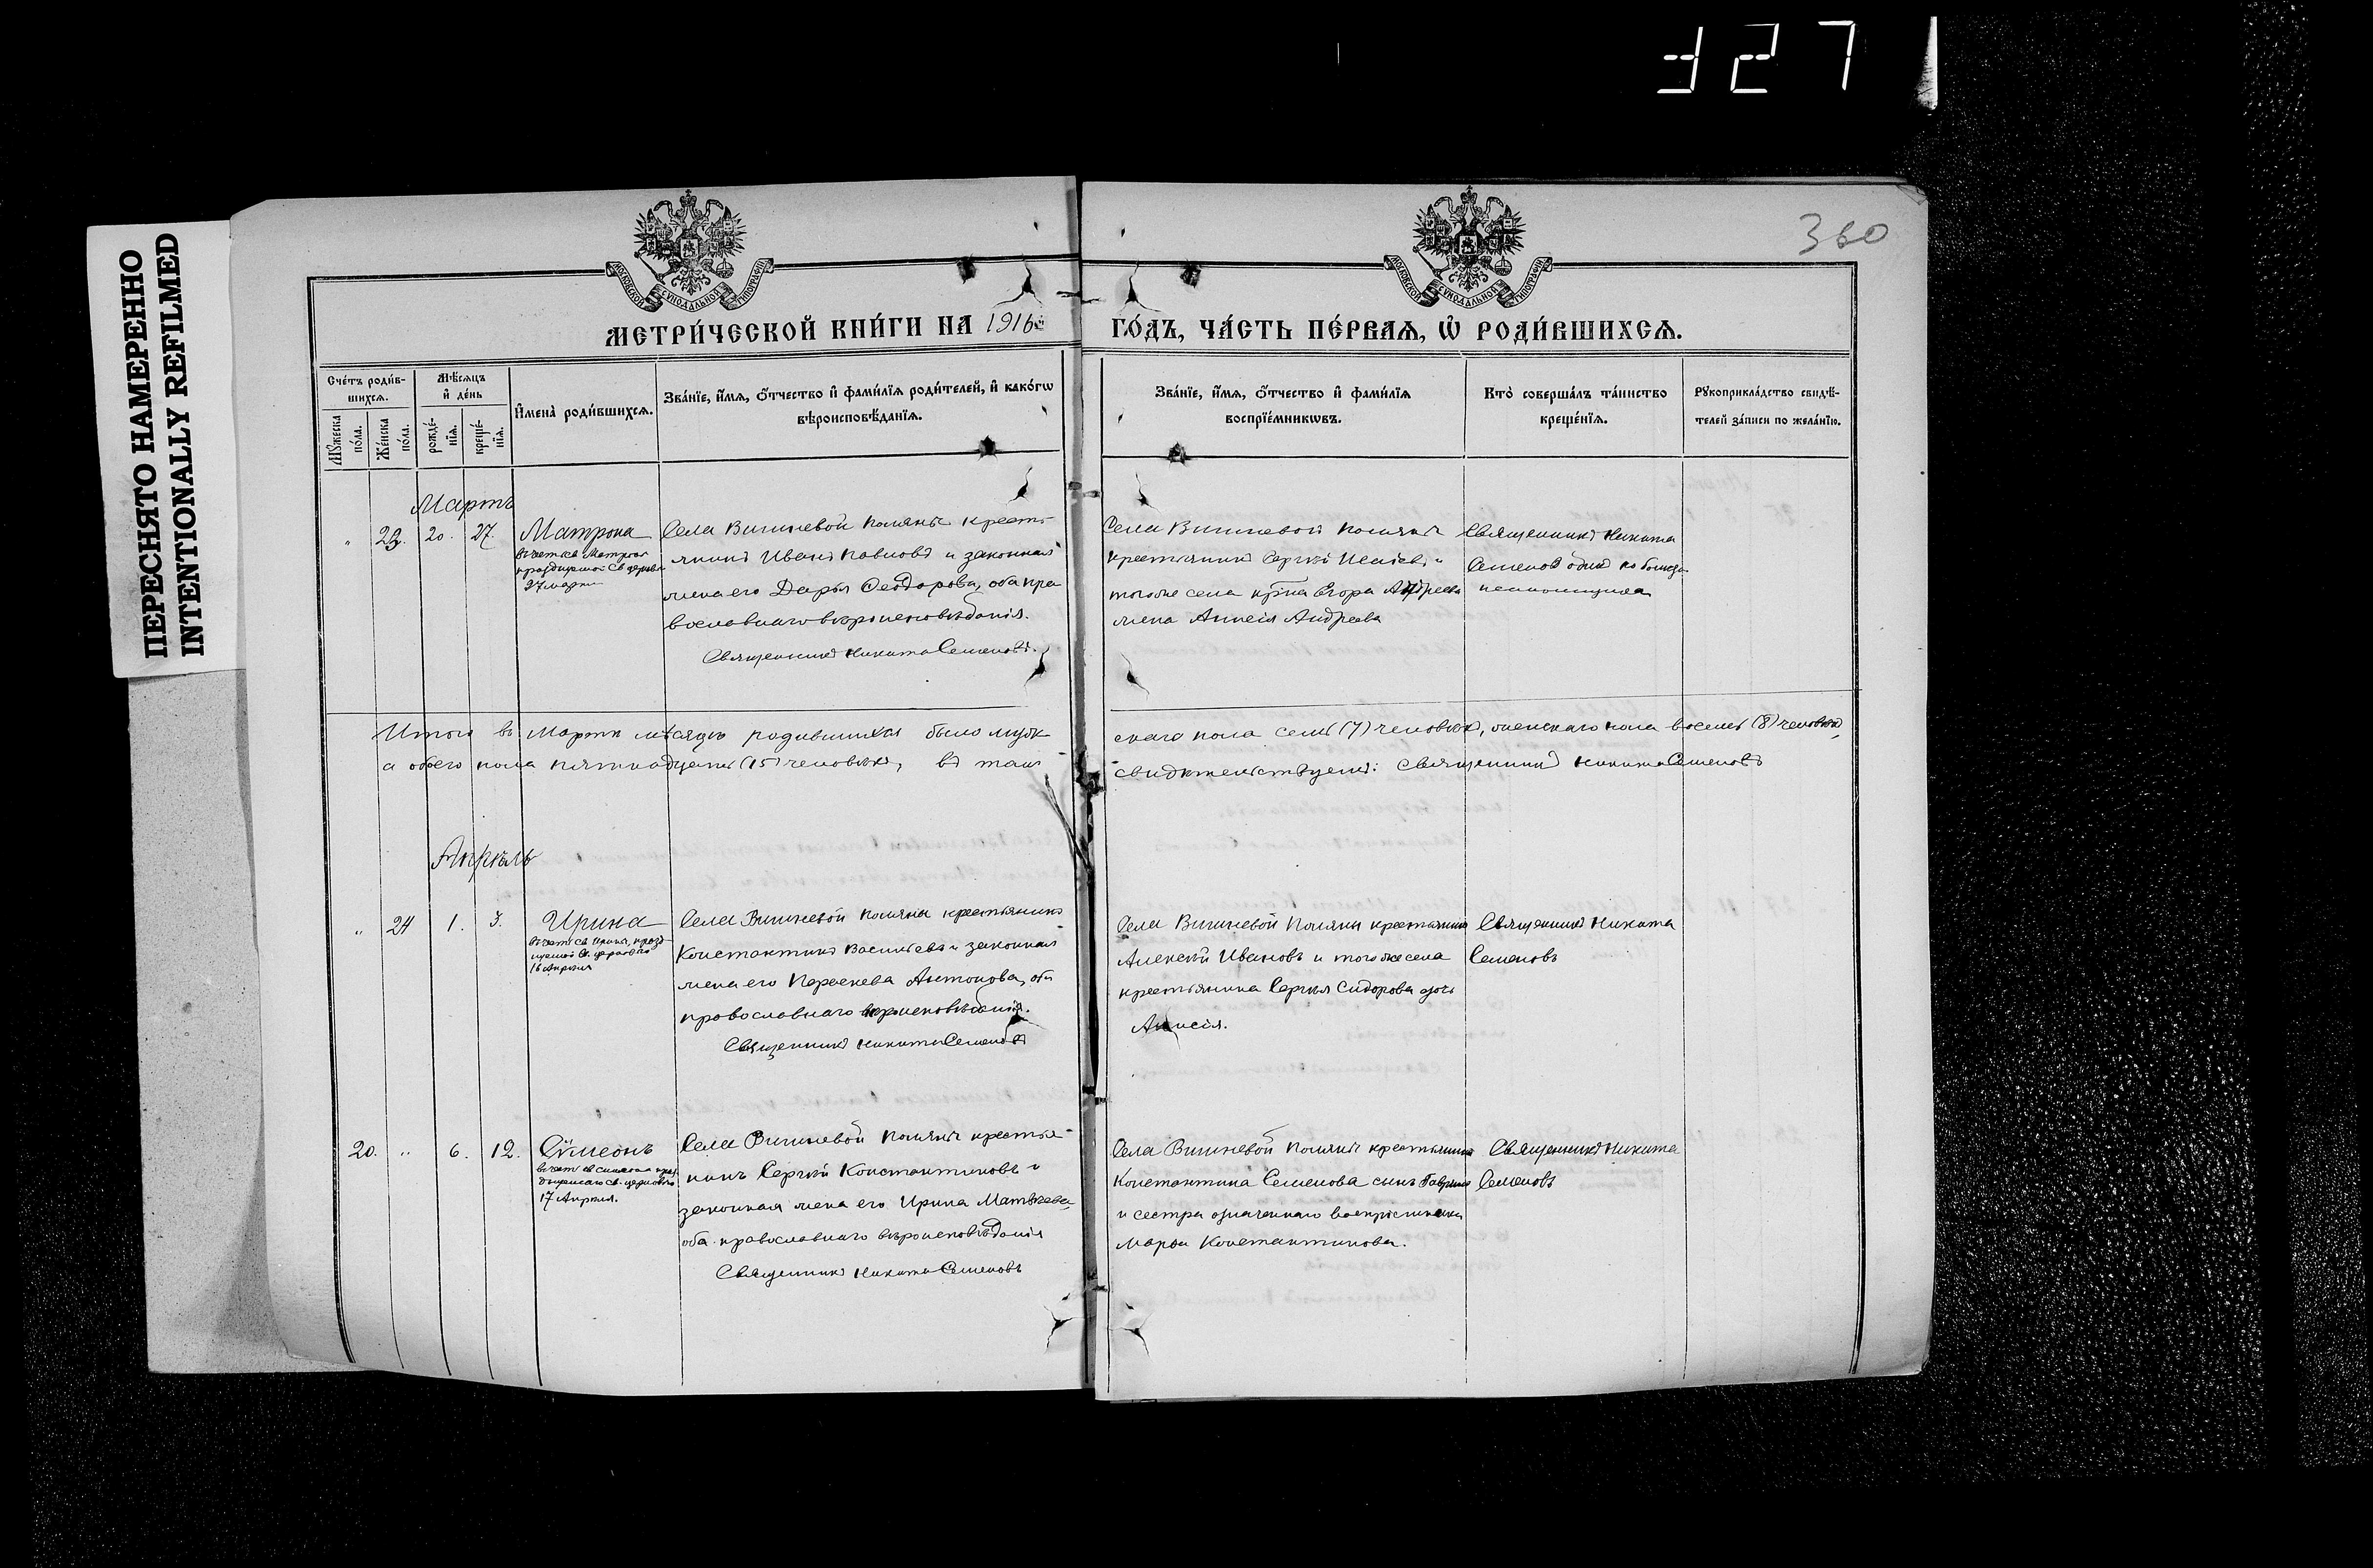 327
ПЕРЕСНЯТО НАМЕРЕННО
INTENTIONALLY REFILMED
360
МОСКОВСКОЙ СѴНОДАЛЬНОЙ ТИПОГРАФІИ
МОСКОВСКОЙ СѴНОДАЛЬНОЙ ТИПОГРАФІИ
МЕТРИ́ЧЕСКОЙ КНИ́ГИ НА 1916й
ГО́ДЪ, ЧА́СТЬ ПЕ́РВАЯ, Ѡ҆ РОДИ́ВШИХСѦ.
Сче́тъ роди́в-
шихсѧ.
Мꙋ́жеска по́ла.
Же́нска по́ла.
Мѣ́сѧцъ
и҆ де́нь
рожде́-
нїѧ.
креще́-
нїѧ.
И҆мена̀ роди́вшихсѧ.
Зва́нїе, и҆́мѧ, ѻ҆́тчество и҆ фами́лїѧ роди́телей, и҆ како́гѡ
вѣроисповѣ́данїѧ.
Зва́нїе, и҆́мѧ, ѻ҆́тчество и҆ фами́лїѧ
воспрїе́мникѡвъ.
Кто̀ соверша́лъ та́инство
креще́нїѧ.
Рꙋкоприкла́дство свидѣ́-
телей за́писи по жела́нїю.
Мартъ
" 23. 20. 27. Матрона
въ честь св Матроны
празднуемой Св церковью
27 марта
Села Вишневой Поляны кресть-
янинъ Иванъ Павловъ и законная
жена его Дарья Ѳеодорова, оба пра
вославнаго вѣроисповѣданія.
Священникъ Никита Семеновъ.
Села Вишневой Поляны
крестьянинъ Сергѣй Исаевъ и
тогоже села кр-на Егора Андреева
жена Анисія Андреева
Священникъ Никита
Семеновъ одинъ по болѣзни
псаломщика
Итого въ Мартѣ мѣсяцѣ родившихся было муж-
скаго пола семь (7) человѣкъ, женскаго пола восемь (8) человѣкъ,
а обоего пола пятнадцать (15) человѣкъ, въ томъ
свидѣтельствуемъ: Священникъ Никита Семеновъ
Апрѣль
" 24 1. 3. Ирина
въ честь св Ирины, празд-
нуемой Св. церковью
16 Апрѣля
Села Вишневой Поляны крестьянинъ
Константинъ Васильевъ и законная
жена его Параскева Антонова, оба
православнаго вѣроисповѣданія.
Священникъ Никита Семеновъ
Села Вишневой Поляны крестьянинъ
Алексѣй Ивановъ и тогоже села
крестьянина Сергѣя Сидорова дочь
Анисія.
Священникъ Никита
Семеновъ
20. " 6. 12. Сѵмеонъ
въ честь св Симеона праз-
днуемаго св. церковью
17 Апрѣля.
Села Вишневой Поляны крестья-
нинъ Сергѣй Константиновъ и
законная жена его Ирина Матвѣева,
оба православнаго вѣроисповѣданія
Священникъ Никита Семеновъ
Села Вишневой Поляны крестьянина
Константина Семенова сынъ Гавріилъ
и сестра означеннаго воспріемника
Марѳа Константинова.
Священникъ Никита
Семеновъ